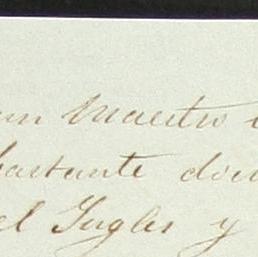 un Maestro
bastante
el Ingles y